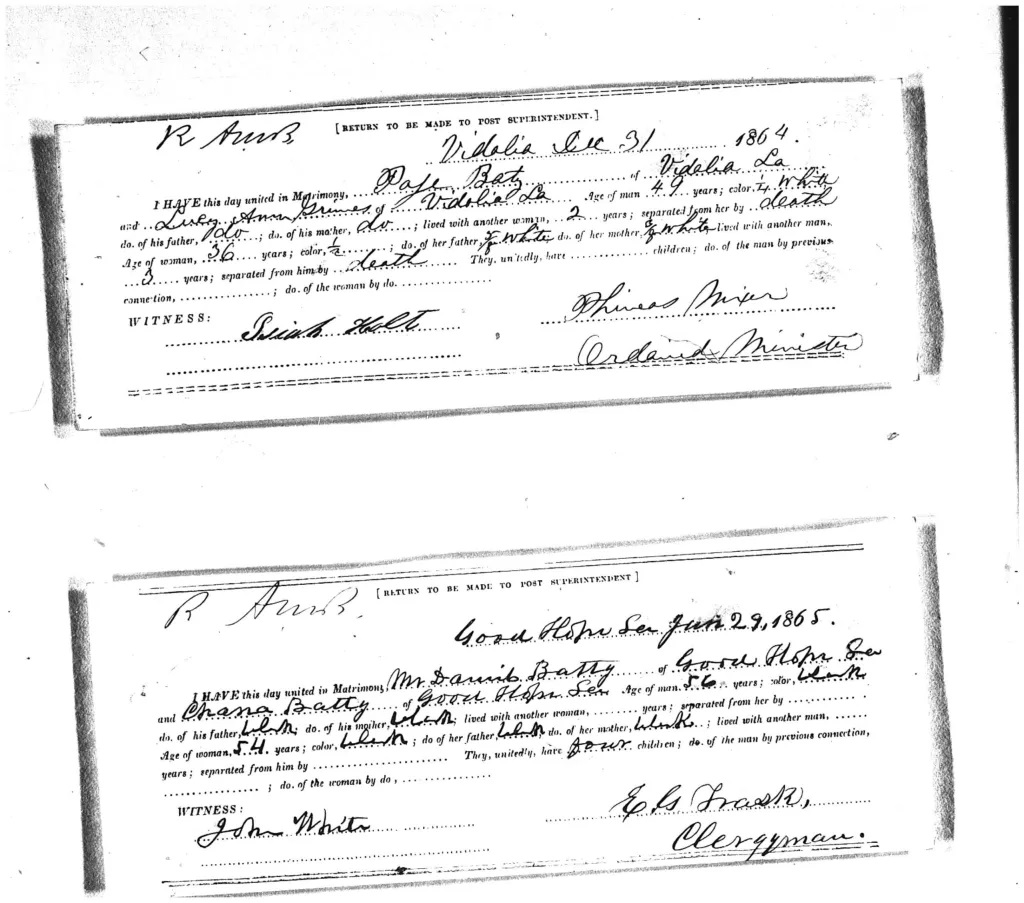 [ RETURN TO BE MADE TO POST SUPERINTENDENT. ]
Vidalia Dec 31 1864.
I HAVE this day united in Matrimony, Batz of Vidalia La
and Lucy Ann Grimes of Vidalia La Age of man 49 years; color, 1/4 White
do. of his father, do; do. of his mother, do; lived with another woman, 2 years; separated from her by death
Age of woman, 36 years; color, 1/2; do. of her father, White do. of her mother, White lived with another man,
3 years; separated from him by death They, unitedly, have children; do. of the man by previous
connection, ; do. of the woman by do.
WITNESS:
Isiah Holt
Phineas Mixer
Ordained Minister
[ RETURN TO BE MADE TO POST SUPERINTENDENT ]
Good Hope Jan 29, 1865.
I HAVE this day united in Matrimony, Mr Batty of Good Hope
and Chana Batty of Good Hope Age of man 56 years; color, black
do. of his father, black; do. of his mother, black; lived with another woman, years; separated from her by
Age of woman, 54 years; color, black; do of her father, black do. of her mother, black; lived with another man,
years; separated from him by They, unitedly, have four children; do. of the man by previous connection,
; do. of the woman by do,
WITNESS:
John White
E G Trask,
Clergyman.